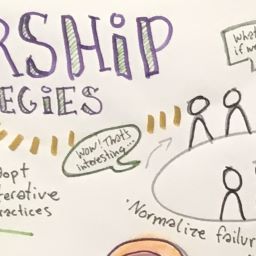 RSHIP
EGIES
What
if we
Wow! That's
interesting...
dopt
terative
ractices
Normalize failur